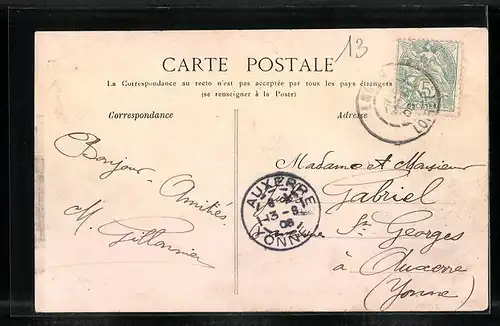 13
CARTE POSTALE
La Correspondance au recto n'est pas acceptée par tous les pays étrangers
(se renseigner à la Poste)
Correspondance
Adresse
Bonjour - Amitiés
M.
Madame et Monsieur
Gabriel
St Georges
à Auxerre
(Yonne)
AUXERRE
13 - 8
08
YONNE